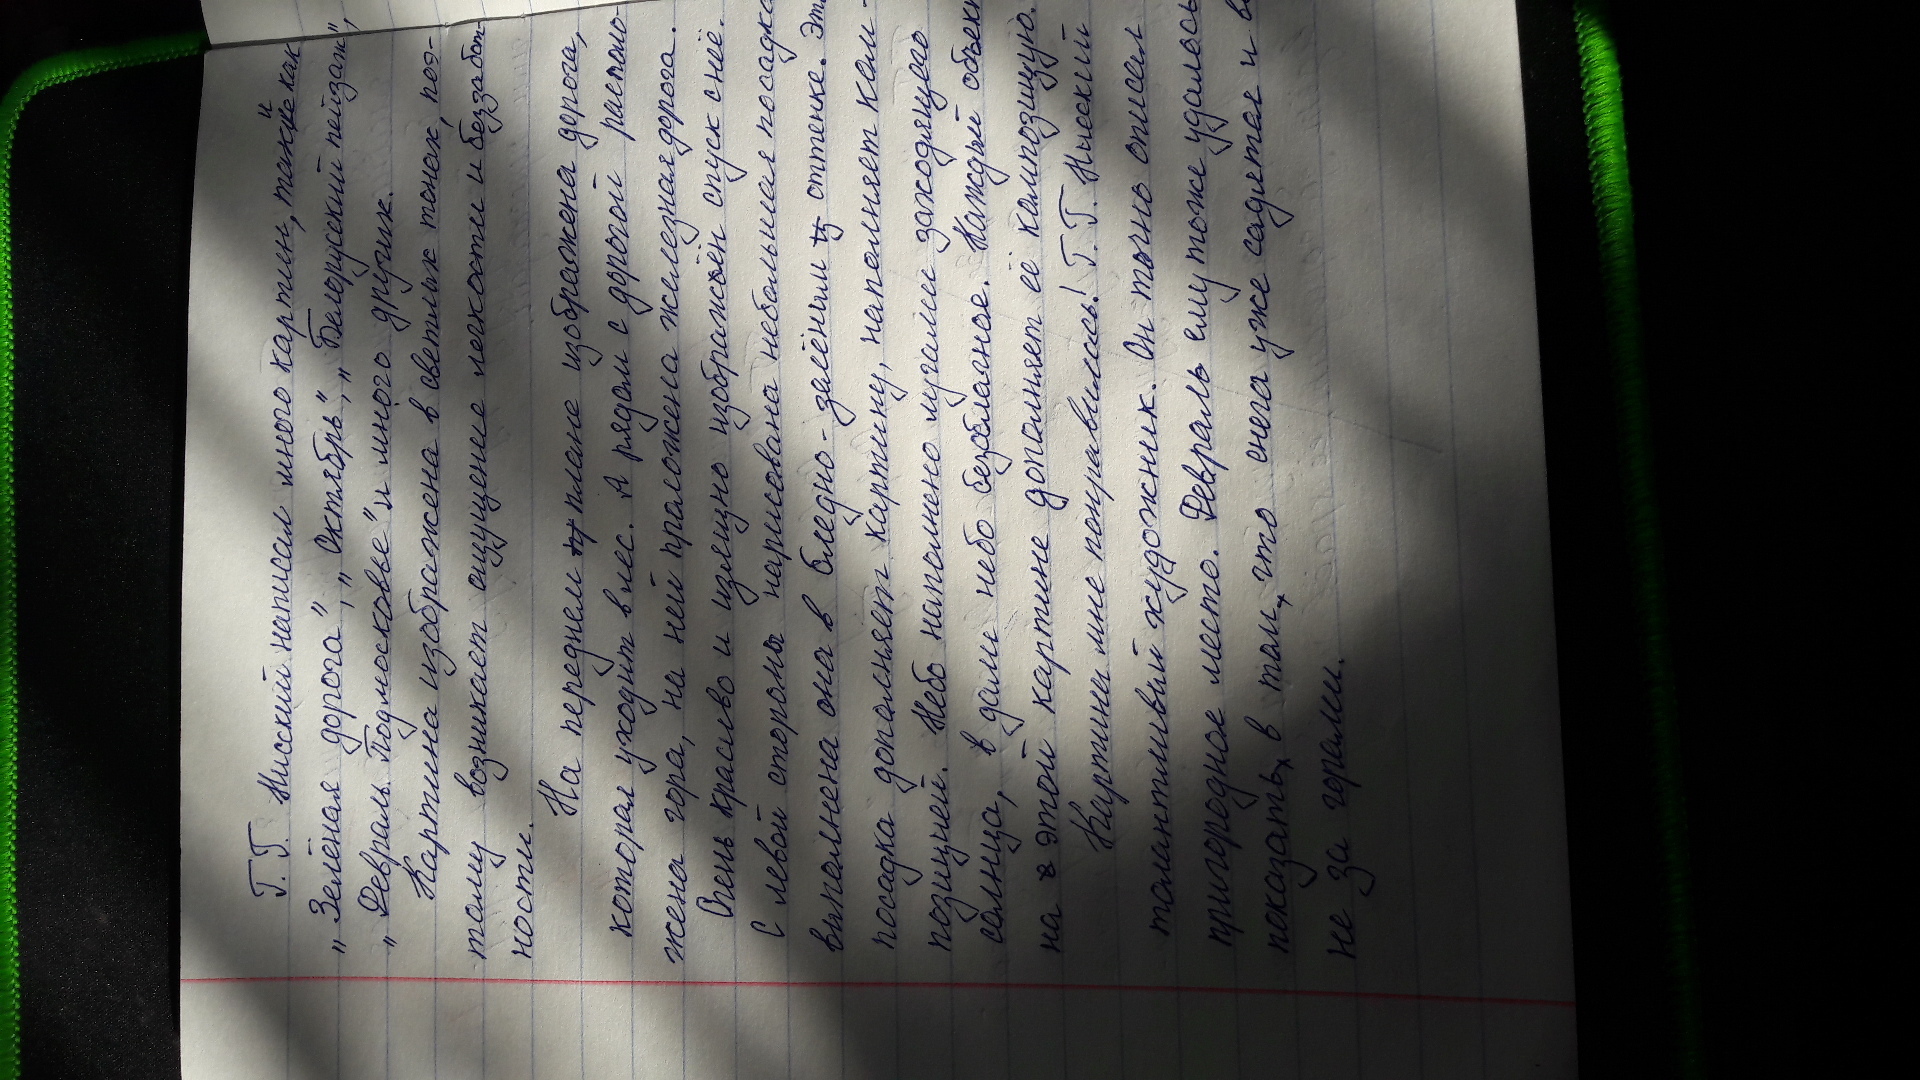 Г.Г. Нисский написал много картин, такие как
„Зелёная дорога", „Октябрь", „Белорусский пейзаж",
„Февраль. Подмосковье" и много других.
Картина изображена в светлых тонах, поэ-
тому возникает ощущение легкости и беззабот
ности.
На переднем плане изображена дорога,
которая уходит в лес. А рядом с дорогой располо
жена гора, на ней проложена железная дорога.
Очень красиво и изящно изображён спуск с неё.
С левой стороны нарисована небольшая посадка
выполнена она в бледно-зелёным оттенке.
посадка дополняет картину, наполняет ком-
позицией. Небо наполнено лучами заходящего
солнца, в дали небо безоблачное. Каждый объект
на этой картине дополняет её композицию.
Картина мне понравилась! Г.Г. Нисский
талантливый художник. Он точно описал
пригородное место. Февраль ему тоже удалось
показать, в том, что снега уже садятся и
не за горами.